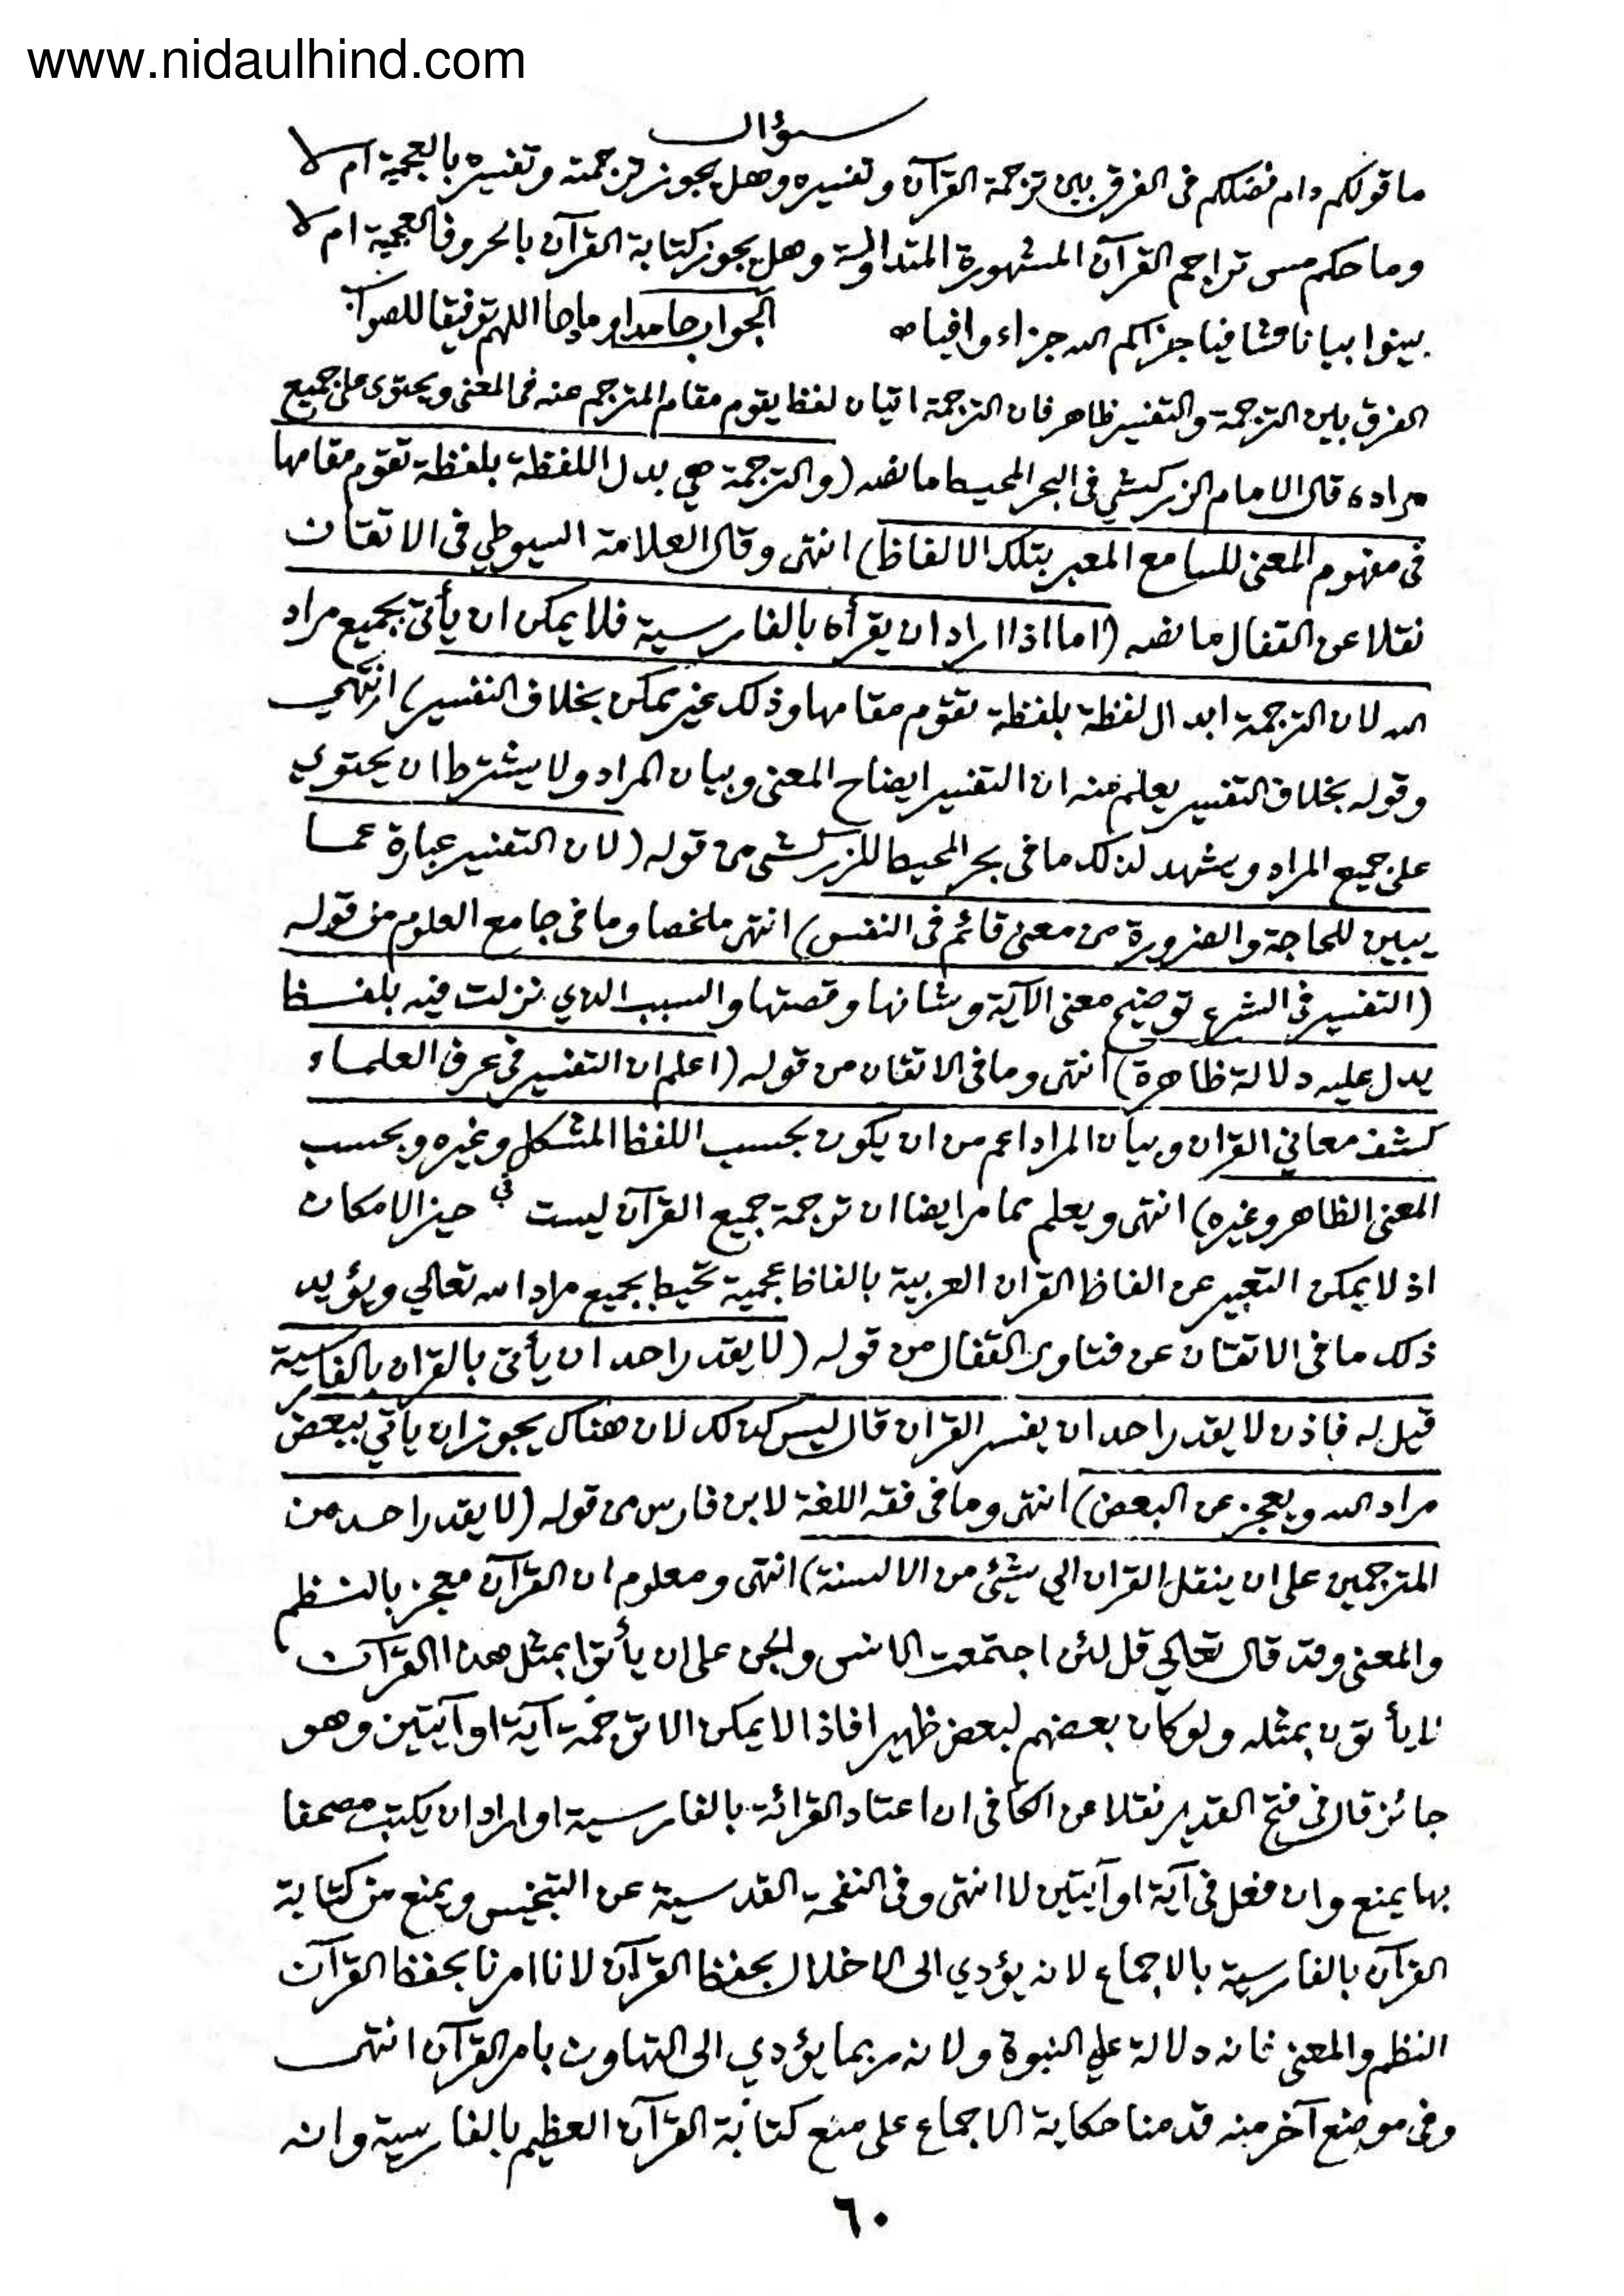 www.nidaulhind.com
سؤال
ما قولكم دام فضلكم فى الفرق بين ترجمة القرآن وتفسيره وهل يجوز ترجمته وتفسيره بالعجمية ام لا
وما حكم مس تراجم القرآن المشهورة المتداولة وهل يجوز كتابة القرآن بالحروف العجمية ام لا
بينوا بيانا شافيا جزاكم الله جزاء وافيا الجواب حامدا و اللهم توفيقا للصواب
الفرق بين الترجمة والتفسير ظاهر فان الترجمة اتيان لفظ يقوم مقام المترجم عنه فى المعنى ويحتوى على جميع
مراده قال الامام الزركشي فى البحر المحيط ما نصه (والترجمة هي بدل اللفظة بلفظة تقوم مقامها
فى مفهوم المعنى للسامع المعبر بتلك الالفاظ) انتهى وقال العلامة السيوطي فى الاتقان
نقلا عن القفال ما نصه (اما اذا اراد ان يقرأه بالفارسية فلا يمكن ان يأتى بجميع مراد
الله لان الترجمة ابدال لفظة بلفظة تقوم مقامها وذلك غير ممكن بخلاف التفسير) انتهي
وقوله بخلاف التفسير يعلم منه ان التفسير ايضاح المعنى وبيان المراد ولا يشترط ان يحتوي
على جميع المراد ويشهد لذلك ما فى بحر المحيط للزركشى من قوله (لان التفسير عبارة عما
يبين للحاجة والضرورة من معنى قائم فى النفس) انتهى ملخصا وما فى جامع العلوم من قوله
(التفسير فى الشرع توضيح معنى الآية وشانها وقصتها والسبب الذي نزلت فيه بلفظ
يدل عليه دلالة ظاهرة) انتهى وما فى الاتقان من قوله (اعلم ان التفسير فى عرف العلماء
كشف معاني القران وبيان المراد اعم من ان يكون بحسب اللفظ المشكل وغيره وبحسب
المعنى الظاهر وغيره) انتهى ويعلم مما مر ايضا ان ترجمة جميع القرآن ليست فى حيز الامكان
اذ لا يمكن التعبير عن الفاظ القران العربية بالفاظ عجمية تحيط بجميع مراد الله تعالي ويؤيد
ذلك ما فى الاتقان عن فتاوى القفال من قوله (لا يقدر احد ان يأتى بالقران بالفارسية
قيل له فاذن لا يقدر احد ان يفسر القران قال ليس كذلك لان هناك يجوز ان ياتي ببعض
مراد الله ويعجز عن البعض) انتهى وما فى فقه اللغة لابن فارس من قوله (لا يقدر احد من
المترجمين على ان ينقل القران الي شيئ من الالسنة) انتهى ومعلوم ان القرآن معجز بالنظم
والمعنى وقد قال تعالي قل لئن اجتمعت الانس والجن على ان يأتوا بمثل هذا القرآن
لا يأتون بمثله ولو كان بعضهم لبعض ظهيرا فاذا لا يمكن الا ترجمة آية او آيتين وهو
جائز قال فى فتح القدير نقلا عن الكافى ان اعتاد القرائة بالفارسية او اراد ان يكتب مصحفا
بها يمنع وان فعل فى آية او آيتين لا انتهى وفى النفحة القدسية عن التجنيس ويمنع من كتابة
القرآن بالفارسية بالاجماع لانه يؤدي الى الاخلال بحفظ القرآن لانا امرنا بحفظ القرآن
النظم والمعنى فانه دلالة علي النبوة ولانه ربما يؤدي الى التهاون بامر القرآن انتهى
وفى موضع آخر منه قدمنا حكاية الاجماع على منع كتابة القرآن العظيم بالفارسية وانه
٦٠